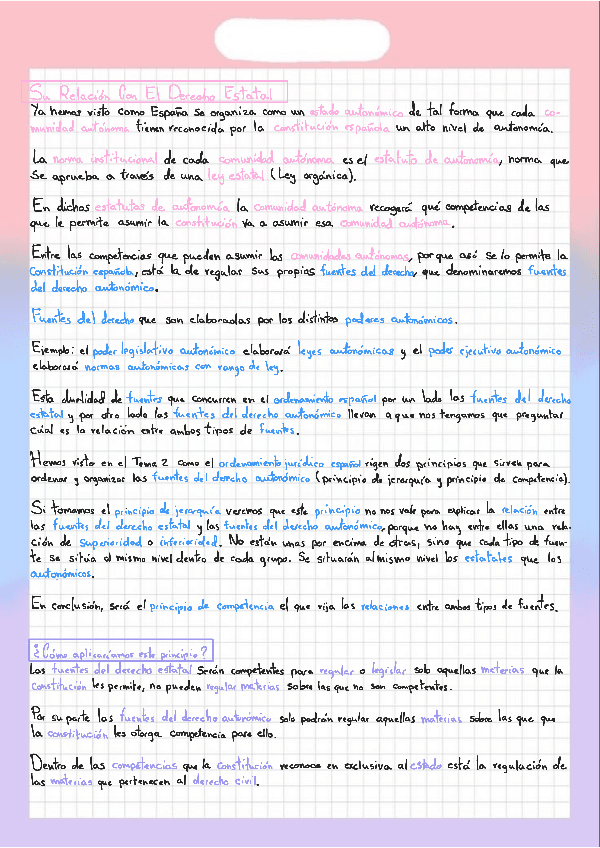 Su Relación Con El Derecho Estatal
Ya hemos visto como España se organiza como un estado autonómico de tal forma que cada co-
munidad autónoma tienen reconocida por la constitución española un alto nivel de autonomía.
La norma institucional de cada comunidad autónoma es el estatuto de autonomía, norma que
se aprueba a través de una ley estatal (Ley orgánica).
En dichos estatutos de autonomía la comunidad autónoma recogerá qué competencias de las
que le permite asumir la constitución va a asumir esa comunidad autónoma.
Entre las competencias que pueden asumir las comunidades autónomas, porque así se lo permite la
Constitución española, está la de regular sus propias fuentes del derecho, que denominaremos fuentes
del derecho autonómico.
Fuentes del derecho que son elaboradas por los distintos poderes autonómicos.
Ejemplo: el poder legislativo autonómico elaborará leyes autonómicas y el poder ejecutivo autonómico
elaborará normas autonómicas con rango de ley.
Esta dualidad de fuentes que concurren en el ordenamiento español por un lado las fuentes del derecho
estatal y por otro lado las fuentes del derecho autonómico llevan a que nos tengamos que preguntar
cuál es la relación entre ambos tipos de fuentes.
Hemos visto en el Tema 2 como el ordenamiento jurídico español rigen dos principios que sirven para
ordenar y organizar las fuentes del derecho autonómico (principio de jerarquía y principio de competencia).
Si tomamos el principio de jerarquía veremos que este principio no nos vale para explicar la relación entre
las fuentes del derecho estatal y las fuentes del derecho autonómico, porque no hay entre ellas una rela-
ción de superioridad o inferioridad. No están unas por encima de otras, sino que cada tipo de fuen-
te se sitúa al mismo nivel dentro de cada grupo. Se situarán al mismo nivel los estatales que los
autonómicos.
En conclusión, será el principio de competencia el que rija las relaciones entre ambos tipos de fuentes.
¿Cómo aplicaríamos este principio?
Las fuentes del derecho estatal serán competentes para regular o legislar solo aquellas materias que la
Constitución les permite, no pueden regular materias sobre las que no son competentes.
Por su parte las fuentes del derecho autonómico solo podrán regular aquellas materias sobre las que que
la constitución les otorga competencia para ello.
Dentro de las competencias que la Constitución reconoce en exclusiva al estado está la regulación de
las materias que pertenecen al derecho civil.